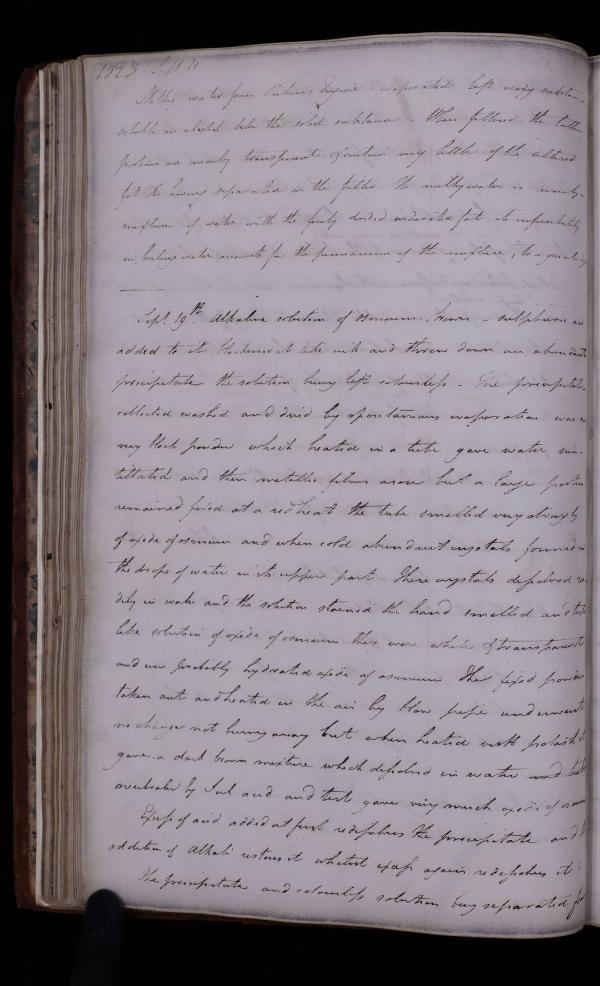 1823. Sept. 11.
Milky water from Perkins's Engine evaporated left waxy substance
soluble in alcohol like the solid substance - When filtered the
portions are nearly transparent & contain very little of the altered
fat its having separated on the filter. The milky water is merely a
mixture of water with the finely divided indurated fat its
in boiling water accounts for the permanence of the mixture, to a great
Sept. 19th Alkaline solution of osmium, brown - sulphuric acid
added to it blackened it like ink and threw down an abundant
precipitate the solution being left colourless - The precipitate
collected washed and dried by spontaneous evaporation was a
very black powder which heated in a tube gave water
and then metallic films arose but a large portion
remained fixed at a red heat the tube smelled very strongly
of oxide of osmium and when cold abundant crystals formed in
the drops of water in its upper part. These crystals dissolved
in water and the solution stained the hand smelled and
like solution of oxide of osmium they were white & transparent
and were probably hydrated oxide of osmium The fixed powder
taken out and heated in the air by blow pipe underwent
no change not burning away but when heated with potash it
gave a dark brown mixture which dissolved in water and
by Sul acid and gave very much oxide of osmium
Excess of acid added at first redissolves the precipitate and
addition of Alkali restores it whilst excess again redissolves it.
The precipitate and colourless solution being separated